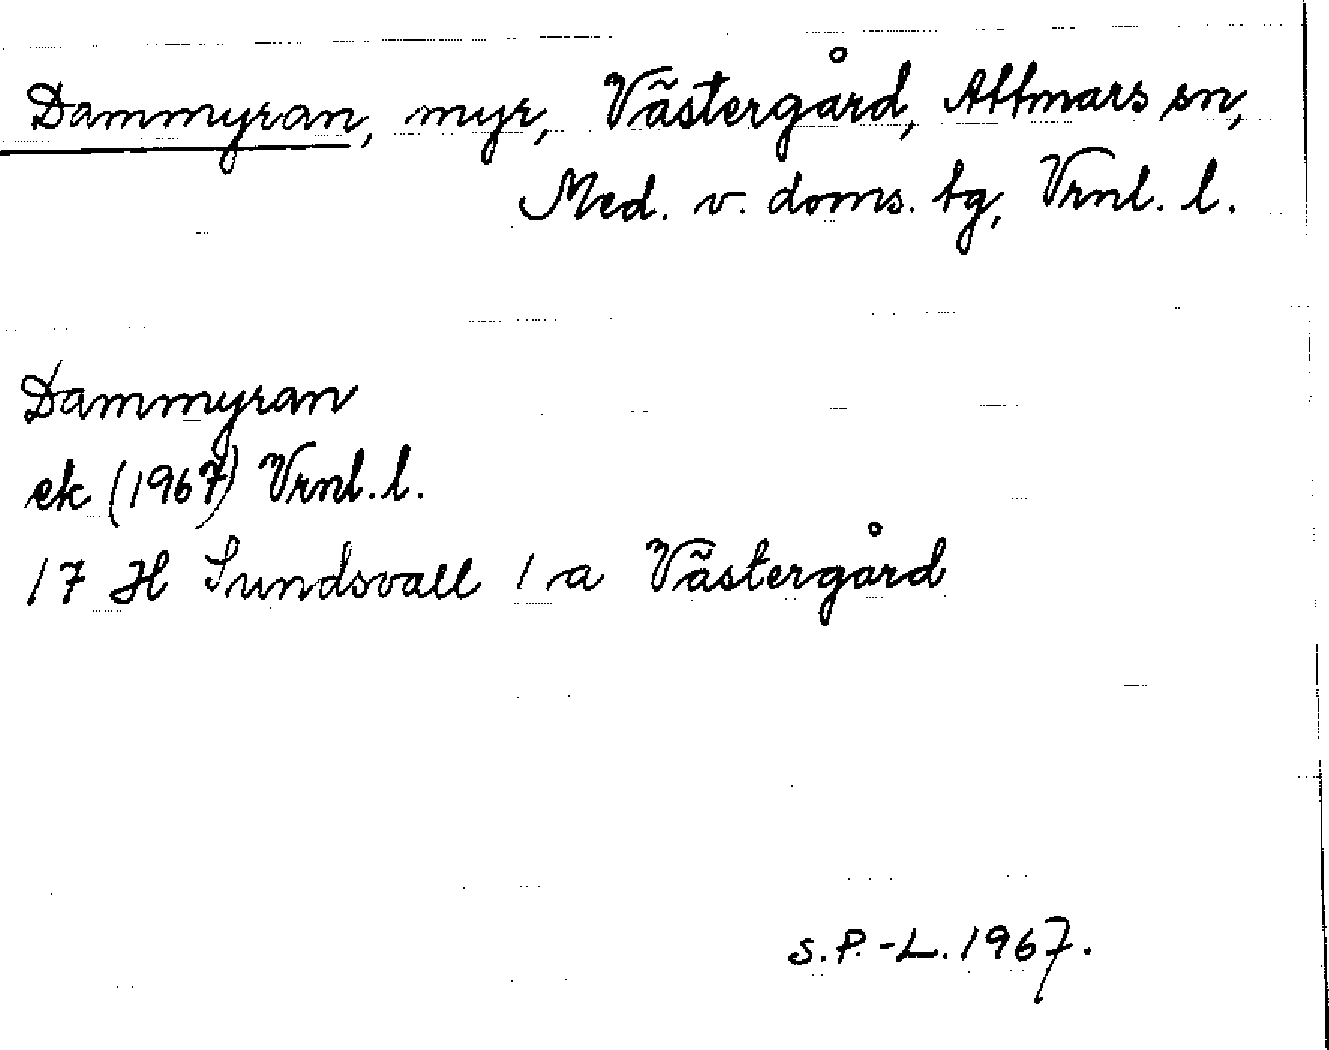 Dammyran, myr, Västergård, Attmars sn,
Med. v. doms. tg, Vrnl. l.
Dammyran
ek (1967) Vrnl. l.
17 H Sundsvall 1 a Västergård
S.P.-L. 1967.